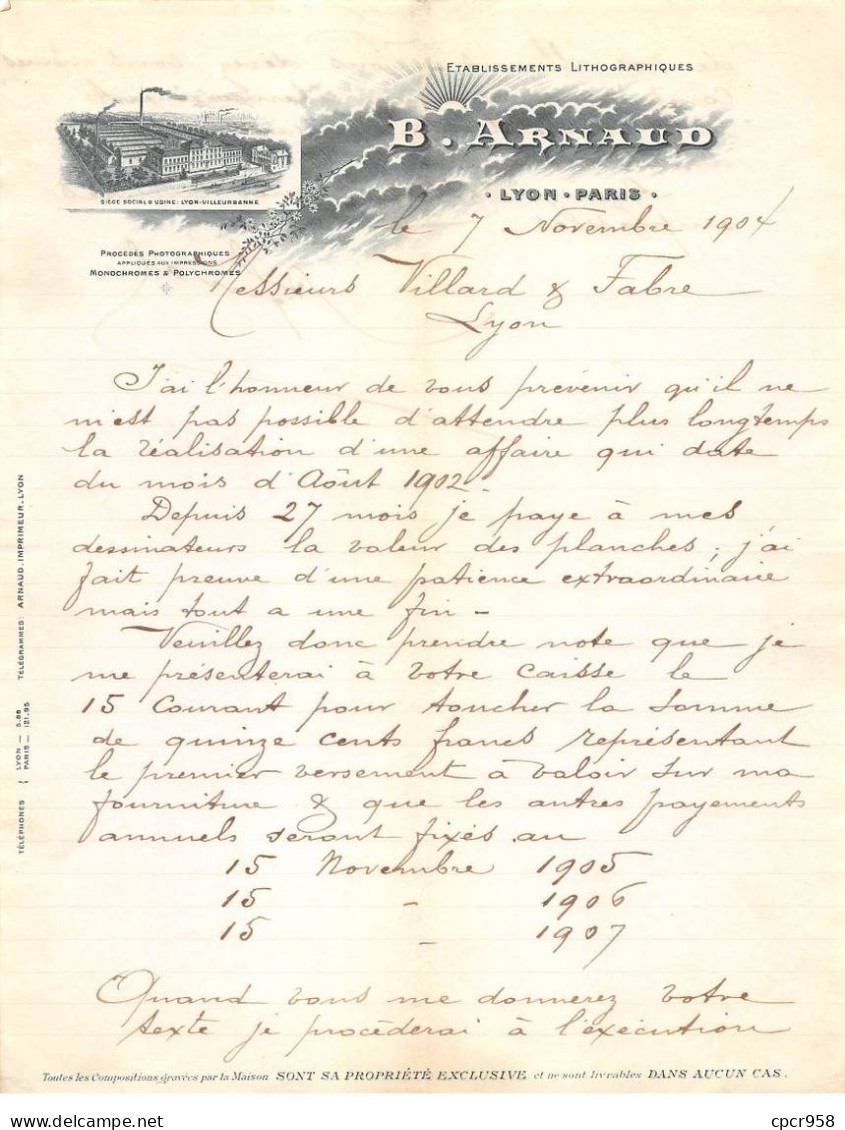 ETABLISSEMENTS LITHOGRAPHIQUES
B. ARNAUD
LYON • PARIS •
SIÈGE SOCIAL & USINE: LYON-VILLEURBANNE
PROCÉDÉS PHOTOGRAPHIQUES
APPLIQUÉS AUX IMPRESSIONS
MONOCHROMES & POLYCHROMES
le 7 Novembre 1904
Messieurs Villard & Fabre
Lyon
J'ai l'honneur de vous prévenir qu'il ne
m'est pas possible d'attendre plus longtemps
la réalisation d'une affaire qui date
du mois d'Août 1902.
Depuis 27 mois je paye à mes
dessinateurs la valeur des planches; j'ai
fait preuve d'une patience extraordinaire
mais tout a une fin -
Veuillez donc prendre note que je
me présenterai à votre caisse le
15 Courant pour toucher la somme
de quinze cents francs représentant
le premier versement à valoir sur ma
fourniture & que les autres payements
annuels seront fixés au
15 Novembre 1905
15 - 1906
15 - 1907
Quand vous me donnerez votre
texte je procéderai à l'exécution
TÉLÉPHONES { LYON — 5.88
PARIS — 121.95
TÉLÉGRAMMES: ARNAUD, IMPRIMEUR, LYON
Toutes les Compositions gravées par la Maison SONT SA PROPRIÉTÉ EXCLUSIVE et ne sont livrables DANS AUCUN CAS.
delcampe.net
cpcr958